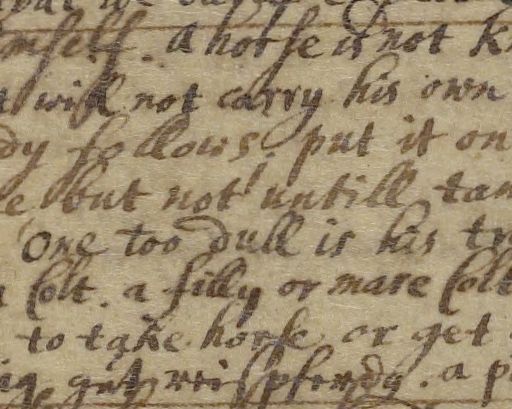 himself. a horse is not
will not carry his own
follows. put it on
but not untill
One too dull is his
Colt. a filly or mare Colt
to take horse or get
a